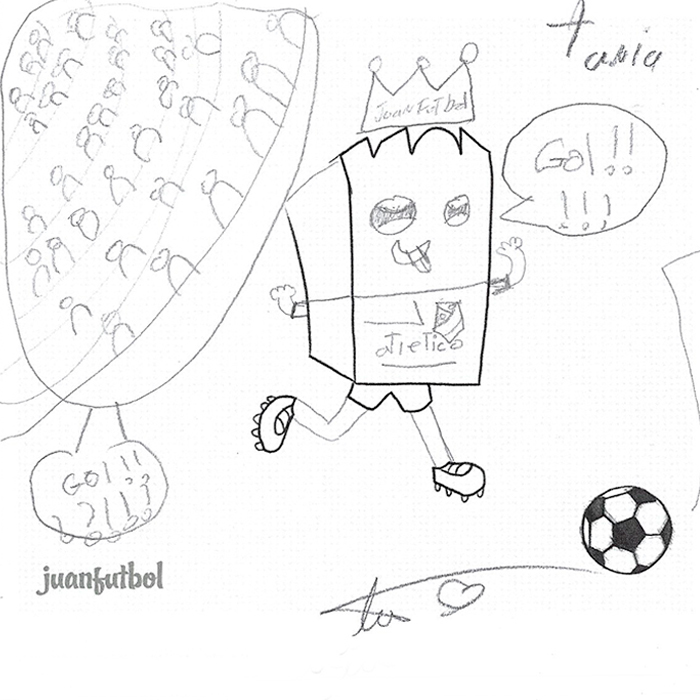 tania
Juan Futbol
Gol!!
!!!
atletico
Gol!!
juanfutbol